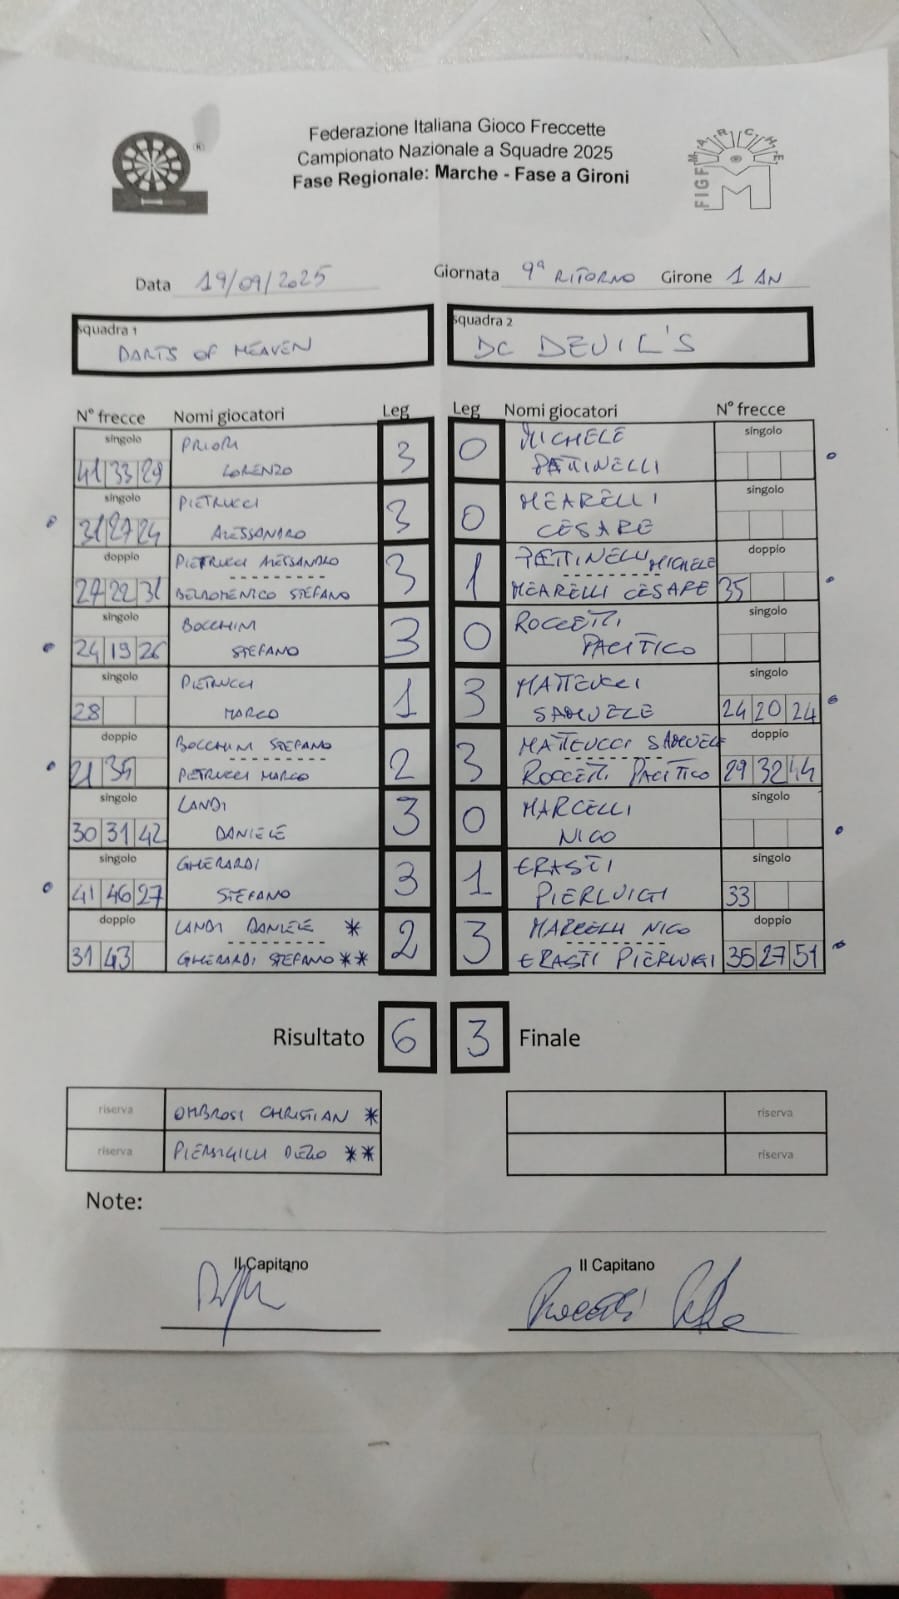 Federazione Italiana Gioco Freccette
Campionato Nazionale a Squadre 2025
Fase Regionale: Marche - Fase a Gironi
FIGF MARCHE
Data 19/09/2025 Giornata 9ª RITORNO Girone 1 AN
squadra 1 squadra 2
DARTS OF HEAVEN DC DEVIL'S
N° frecce Nomi giocatori Leg Leg Nomi giocatori N° frecce
singolo PRIORI 3 0 MICHELE singolo
41 33 29 LORENZO PATTINELLI
singolo PIETRUCCI 3 0 MEARELLI singolo
31 27 24 ALESSANDRO CESARE
doppio PIETRUCCI ALESSANDRO 3 1 PATTINELLI MICHELE doppio
27 22 31 BELDOMENICO STEFANO MEARELLI CESARE 35
singolo BOCCHINI 3 0 ROCCETTI singolo
24 19 26 STEFANO PACITICO
singolo PIETRUCCI 1 3 MATTEUCCI singolo
28 MARCO SAMUELE 24 20 24
doppio BOCCHINI STEFANO 2 3 MATTEUCCI SAMUELE doppio
21 35 PIETRUCCI MARCO ROCCETTI PACITICO 29 32 44
singolo LANDI 3 0 MARCELLI singolo
30 31 42 DANIELE NICO
singolo GHERARDI 3 1 ERASTI singolo
41 46 27 STEFANO PIERLUIGI 33
doppio LANDI DANIELE * 2 3 MARCELLI NICO doppio
31 43 GHERARDI STEFANO ** ERASTI PIERLUIGI 35 27 51
Risultato 6 3 Finale
riserva OMBROSI CHRISTIAN * riserva
riserva DIEGO ** riserva
Note:
Il Capitano Il Capitano